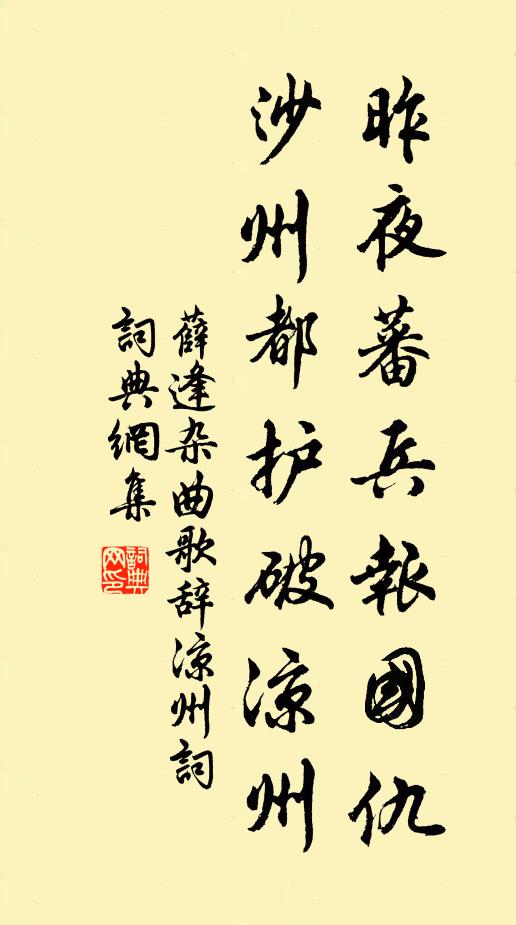 昨夜蕃兵報國仇
沙州都护破凉州
薛逢杂曲歌辞凉州詞
詞典網集
詞典网印